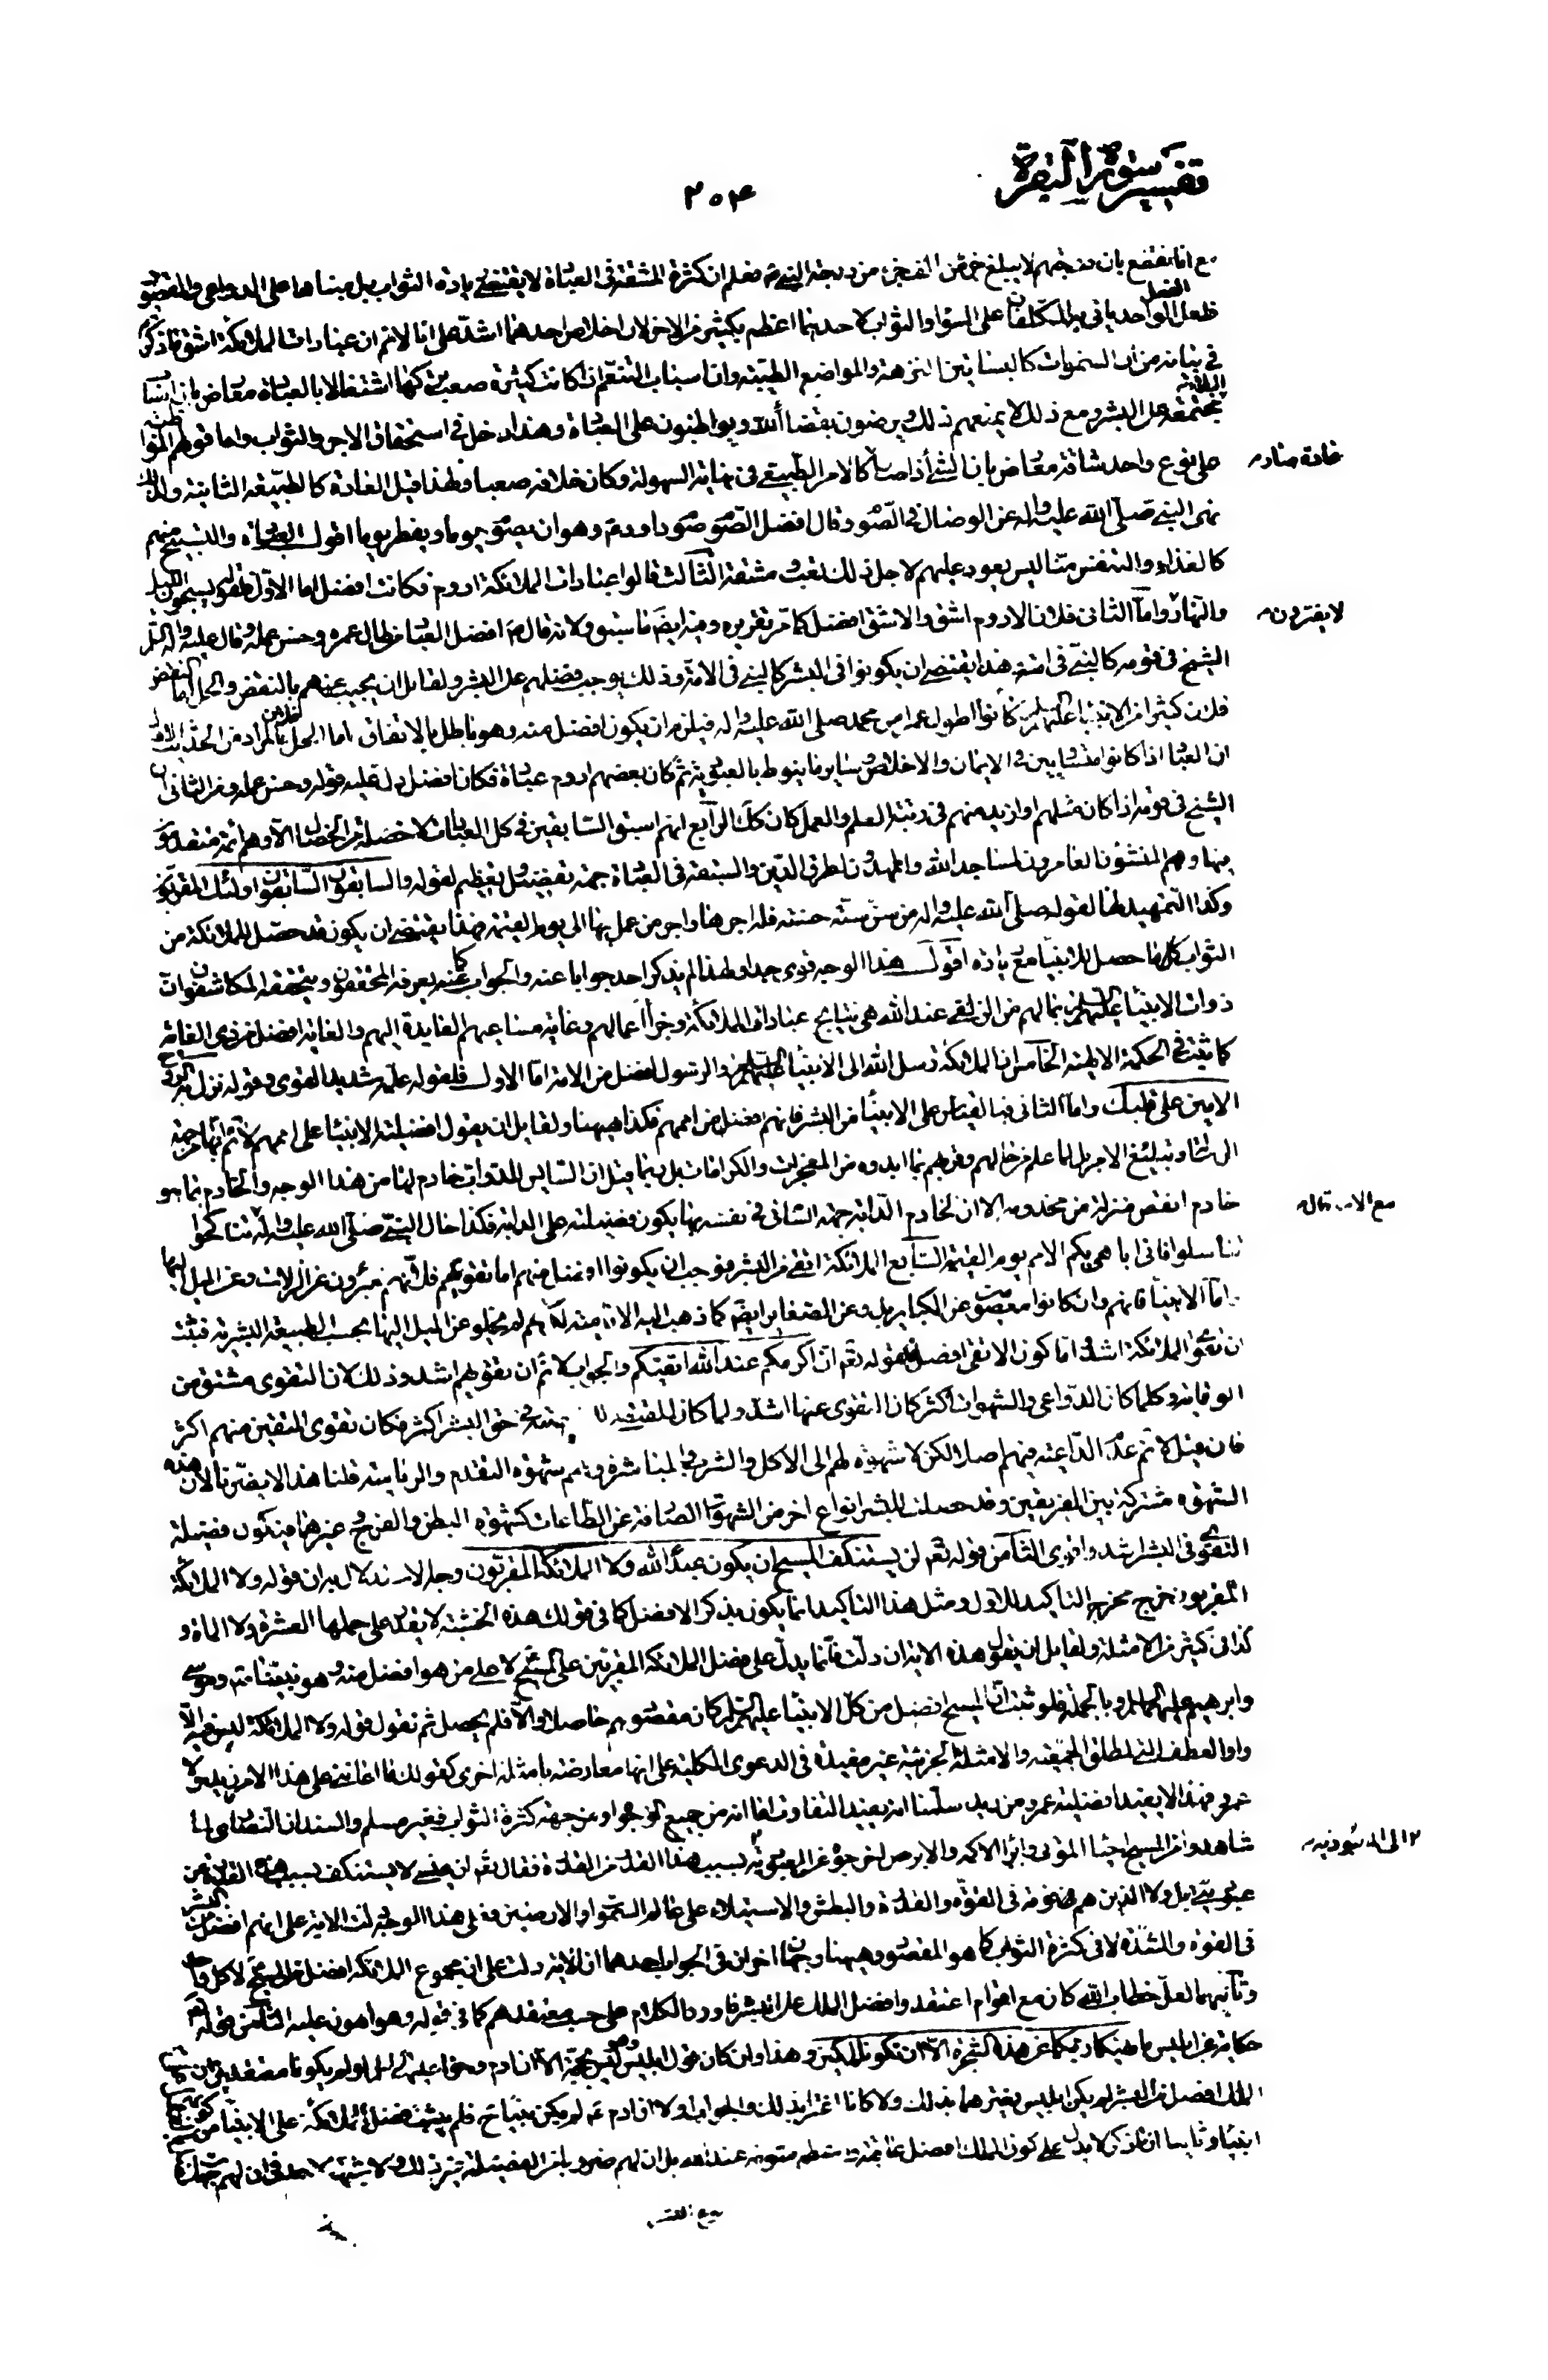 تفسير سورة البقرة
٢٠٤
مع انا نقطع بان درجتهم لا يبلغ درجة النبي فعلم ان كثرة المشقة في العبادة لا يقتضي زيادة الثواب بل بناها على الدواعي والقصود
فلعل الفعل الواحد ياتي به المكلفان على السواء والثواب لاحدهما اعظم بكثير من الاخر لان اخلاص احدهما اشد على انا لا نم ان عبادات الملائكة اشق
في بيانه من ان السموات كالبساتين النزهة والمواضع الطيبة وان اسباب التنعم اذا كانت كثيرة صعب تركها اشتغالا بالعبادة معارض بان اسباب البلاء
مجتمعة على البشر ومع ذلك لا يمنعهم ذلك يرضون بقضاء الله ويواظبون على العبادة وهذا دخل في استحقاق الاجر والثواب واما قولهم المواظبة
على نوع واحد شاقة معارض بان الشئ اذا صار عادة صار كالامر الطبيعي في نهاية السهولة وكان خلافه صعبا ولهذا قيل العادة كالطبيعة الثانية ولذلك
نهى النبي صلى الله عليه واله عن الوصال في الصوم وقال افضل الصوم صوم داود وهو ان يصوم يوما ويفطر يوما اقول العبادة والتسبيح منهم
كالغذاء والتنفس منا ليس يعود عليهم لاجل ذلك تعب ومشقة الثالث قالوا عبادات الملائكة ادوم فكانت افضل اما الاول فلقوله يسبحون الليل
والنهار لا يفترون واما الثاني فلان الادوم اشق والاشق افضل كما مر تقريره وفيه ايضا ما سبق ولانه قال افضل العباد من طال عمره وحسن عمله وقال عليه واله السلم
الشيخ في قومه كالنبي في امته هذا يقتضي ان يكونوا في البشر كالنبي في الامة وذلك يوجب فضلهم على البشر ولقائل ان يجيب عنهم بالنقض والحل اما النقض
فلان كثيرا من الانبياء عليهم السلم كانوا اطول عمرا من محمد صلى الله عليه واله فيلزم ان يكون افضل منه وهو باطل بالاتفاق اما الحل فلان المراد من الحديث الاول
ان العباد اذا كانوا متساويين في الايمان والاخلاص وساير ما ينوط بالعبودية ثم كان بعضهم ادوم عبادة فكان افضل يدل عليه قوله وحسن عمله ومن الثاني ان
الشيخ في قومه اذا كان مثلهم او ازيد منهم في رتبة العلم والعمل كان كذلك الرابع انهم اسبق السابقين في كل العبادات لا خصلة من الخصال الا وهم ائمة متقدمون
فيها وهم المنشؤن العامرون لمساجد الله والممهدون لطرق الدين والسبقة في العبادة جهة تفضيل وتعظيم لقوله والسابقون السابقون اولئك المقربون
وكذا التمهيد لها لقوله صلى الله عليه واله من سن سنة حسنة فله اجرها واجر من عمل بها الى يوم القيمة فهذا يقتضي ان يكون قد حصل للملائكة من
الثواب كل ما حصل للانبياء مع زيادة اقول هذا الوجه قوي جدا ولهذا لم يذكر احد جوابا عنه والجواب عنه كما يعرفه المحققون ويتحققه المكاشفون ان
ذوات الانبياء عليهم السلم بما لهم من الزلفى عند الله هي نتايج عبادات الملائكة وجزاء اعمالهم وغاية مساعيهم الفايدة اليهم والغاية افضل من ذي الغاية
كما ثبت في الحكمة الالهية الخامس ان الملائكة رسل الله الى الانبياء عليهم السلم والرسول افضل من الامة اما الاول فلقوله علمه شديد القوى وقوله نزل به الروح
الامين على قلبك واما الثاني فبالقياس على الانبياء من البشر فانهم افضل من اممهم فكذا هيهنا ولقائل ان يقول افضلية الانبياء على اممهم لا نم انها من جهة
الرسالة وتبليغ الامر بل لما علم من حالهم وقربهم بما ابدوه من المعجزات والكرامات بل ربما قيل ان السايس للدواب خادم لها من هذا الوجه والخادم بما هو
خادم انقص منزلة من مخدومه الا ان لخادم الدابة جهة انسانية في نفسه بها يكون فضيلته على الدابة فكذا حال النبي صلى الله عليه واله مع الامة قال تناكحوا
تناسلوا فاني اباهي بكم الامم يوم القيمة السابع الملائكة اتقى من البشر فوجب ان يكونوا افضل منهم اما تقويهم فلانهم مبرؤن عن الزلات وعن الميل اليها
واما الانبياء فانهم وان كانوا معصومين عن الكباير بل وعن الصغاير ايضا كما ذهب اليه الامامية لكنهم لم يخلو عن الميل اليها بحسب الطبيعة البشرية فثبت
ان تقوى الملائكة اشد اما كون الاتقى افضل فلقوله تعم ان اكرمكم عند الله اتقيكم والجواب لا نم ان تقويهم اشد وذلك لان التقوى مشتق من
الوقاية وكلما كان الدواعي والشهوات اكثر كان التقوى عنها اشد ولما كان المقتضي للمعصية في حق البشر اكثر فكان تقوى المتقين منهم اكثر
فان قيل لا نم عدم الداعية فيهم اصلا لكن لا شهوة لهم الى الاكل والشرب والمباشرة ولهم شهوة التقدم والرياسة قلنا هذا لا يضرنا لان هذه
الشهوة مشتركة بين الفريقين وقد حصلت للبشر انواع اخر من الشهوات الصارفة عن الطاعات كشهوة البطن والفرج وغيرهما فيكون فضيلة
التقوى في البشر اشد واقوى الثامن قوله تعم لن يستنكف المسيح ان يكون عبدا لله ولا الملائكة المقربون وجه الاستدلال به ان قوله ولا الملائكة
المقربون خرج مخرج التاكيد للاول ومثل هذا التاكيد انما يكون بذكر الافضل كما في قولك هذه الخشبة لا يقدر على حملها العشرة ولا الماة و
كذا في كثير من الامثلة ولقائل ان يقول هذه الاية ان دلت فانما يدل على فضل الملائكة المقربين على المسيح لا على من هو افضل منه وهو نبينا وموسى
وابرهيم عليهم السلم وبالجملة فلو ثبت ان المسيح افضل من كل الانبياء عليهم السلم كان مقصودهم حاصلا والا فلم يحصل ثم نقول قوله ولا الملائكة ليس فيه الا
واو العطف التي لمطلق الجمعية والامثلة الجزئية غير مفيدة في الدعوى الكلية على انها معارضة بامثلة اخرى كقولك ما اعانني على هذا الامر زيد ولا
عمرو فهذا لا يفيد افضلية عمرو من زيد سلمنا انه يفيد التفاوت اما انه من جميع الوجوه او من جهة كثرة الثواب فغير مسلم والسند ان النصارى لما
شاهدوا من المسيح احياء الموتى وابراء الاكمه والابرص اخرجوه عن العبودية الى المعبودية بسبب هذا القدر من القدرة فقال تعم ان عيسى لا يستنكف بسبب هذه القدرة عن
عبوديتي بل ولا الذين هم فوقه في القوة والقدرة والبطش والاستيلاء على عالم السموات والارضين فعلى هذا الوجه دلت الاية على انهم افضل من البشر
في القوة والشدة لا في كثرة الثواب كما هو المقصود وهيهنا وجهان اخران في الجواب احدهما ان الاية دلت على ان مجموع الملائكة افضل من المسيح لا كل واحد
وثانيهما لعل خطاب الله كان مع اقوام اعتقدوا فضل الملك على البشر فاورد الكلام على حسب معتقدهم كما في قوله وهو اهون عليه الثامن قوله تعم
حكاية عن ابليس ما نهيكما ربكما عن هذه الشجرة الا ان تكونا ملكين وهذا وان كان قول ابليس وهو ليس بحجة الا ان ادم وحوا عليهما السلم لو لم يكونا معتقدين ان
الملك افضل من البشر لم يكن ابليس يغرهما بذلك ولا كانا اغترا بذلك والجواب اولا ان ادم لم يكن نبيا ح فلم يثبت فضل الملائكة على الانبياء
وثانيا ان ما ذكر لا يدل على كون الملك افضل